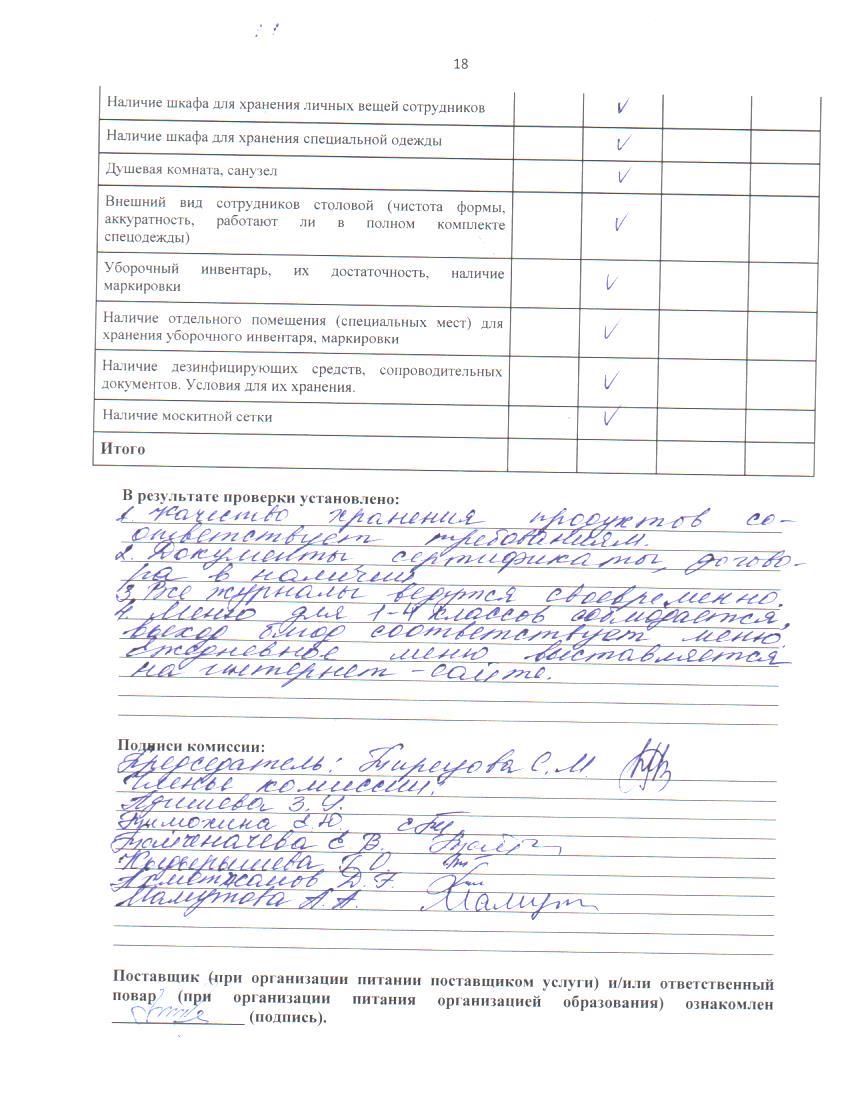 18
Наличие шкафа для хранения личных вещей сотрудников V
Наличие шкафа для хранения специальной одежды V
Душевая комната, санузел V
Внешний вид сотрудников столовой (чистота формы,
аккуратность, работают ли в полном комплекте V
спецодежды)
Уборочный инвентарь, их достаточность, наличие V
маркировки
Наличие отдельного помещения (специальных мест) для V
хранения уборочного инвентаря, маркировки
Наличие дезинфицирующих средств, сопроводительных V
документов. Условия для их хранения.
Наличие москитной сетки V
Итого
В результате проверки установлено:
1. Качество хранения продуктов со-
ответствует требованиям.
2. Документы, сертификаты, догово-
ра в наличии
3. Все журналы ведутся своевременно.
4. Меню для 1-4 классов соблюдается,
выход блюд соответствует меню.
Ежедневное меню выставляется
на интернет-сайте.
Подписи комиссии:
Председатель: С.М
Члены комиссии:
Адишева З.
Тимохина Ю.
Толченачева Е В.
Кыдырышева О.
Д.
Мамутова А.А. Мамут
Поставщик (при организации питании поставщиком услуги) и/или ответственный
повар (при организации питания организацией образования) ознакомлен
(подпись).